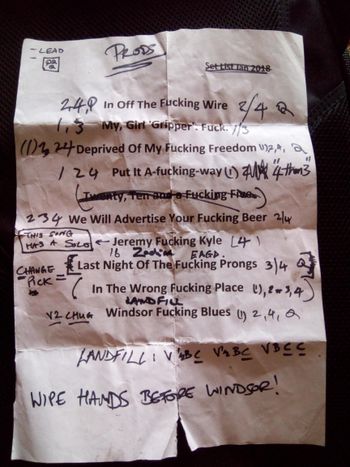 - LEAD
PRODS
Set List Jan 2018
2,4,Q In Off The Fucking Wire 2/4 Q
1, 3 My, Girl 'Gripper'. Fuck. 1/3
(1) 2, 24 Deprived Of My Fucking Freedom 1), 2, 4, Q
1 2 4 Put It A-fucking-way (1) "4 then 3"
(Twenty, Ten and a Fucking Five.)
2 3 4 We Will Advertise Your Fucking Beer 2/4
THIS SONG HAS A SOLO ← Jeremy Fucking Kyle [4]
16 EADG.
CHANGE PICK Last Night Of The Fucking Prongs 3/4 Q
In The Wrong Fucking Place (1), 2 3, 4)
LANDFILL
V2 CHUG Windsor Fucking Blues (1) 2, 4, Q
LANDFILL: V ½ B C V ½ B C V B C C
WIPE HANDS BEFORE WINDSOR!